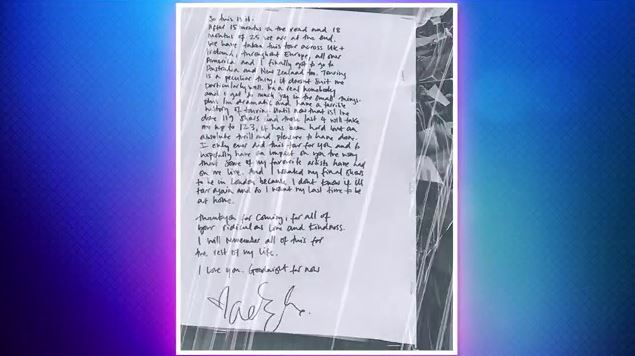 So this is it.
After 15 months on the road and 18
months of 25 we are at the end.
We have taken this tour across UK +
Ireland, throughout Europe, all over
America and I finally got to go to
Australia and New Zealand too. Touring
is a peculiar thing, it doesn't suit me
particularly well. I'm a real homebody
and I get so much joy in the small things.
plus I'm dramatic and have a terrible
history of touring. Until now that is! I've
done 119 shows and these last 4 will take
me up to 123, it has been hard but an
absolute thrill and pleasure to have done.
I only ever did this tour for you and to
hopefully have an impact on you the way
that some of my favourite artists have had
on me live. And I wanted my final shows
to be in London because I don't know if I'll
tour again and so I want my last time to be
at home.
Thankyou for coming, for all of
your ridiculous love and kindness.
I will remember all of this for
the rest of my life.
I love you. Goodnight for now